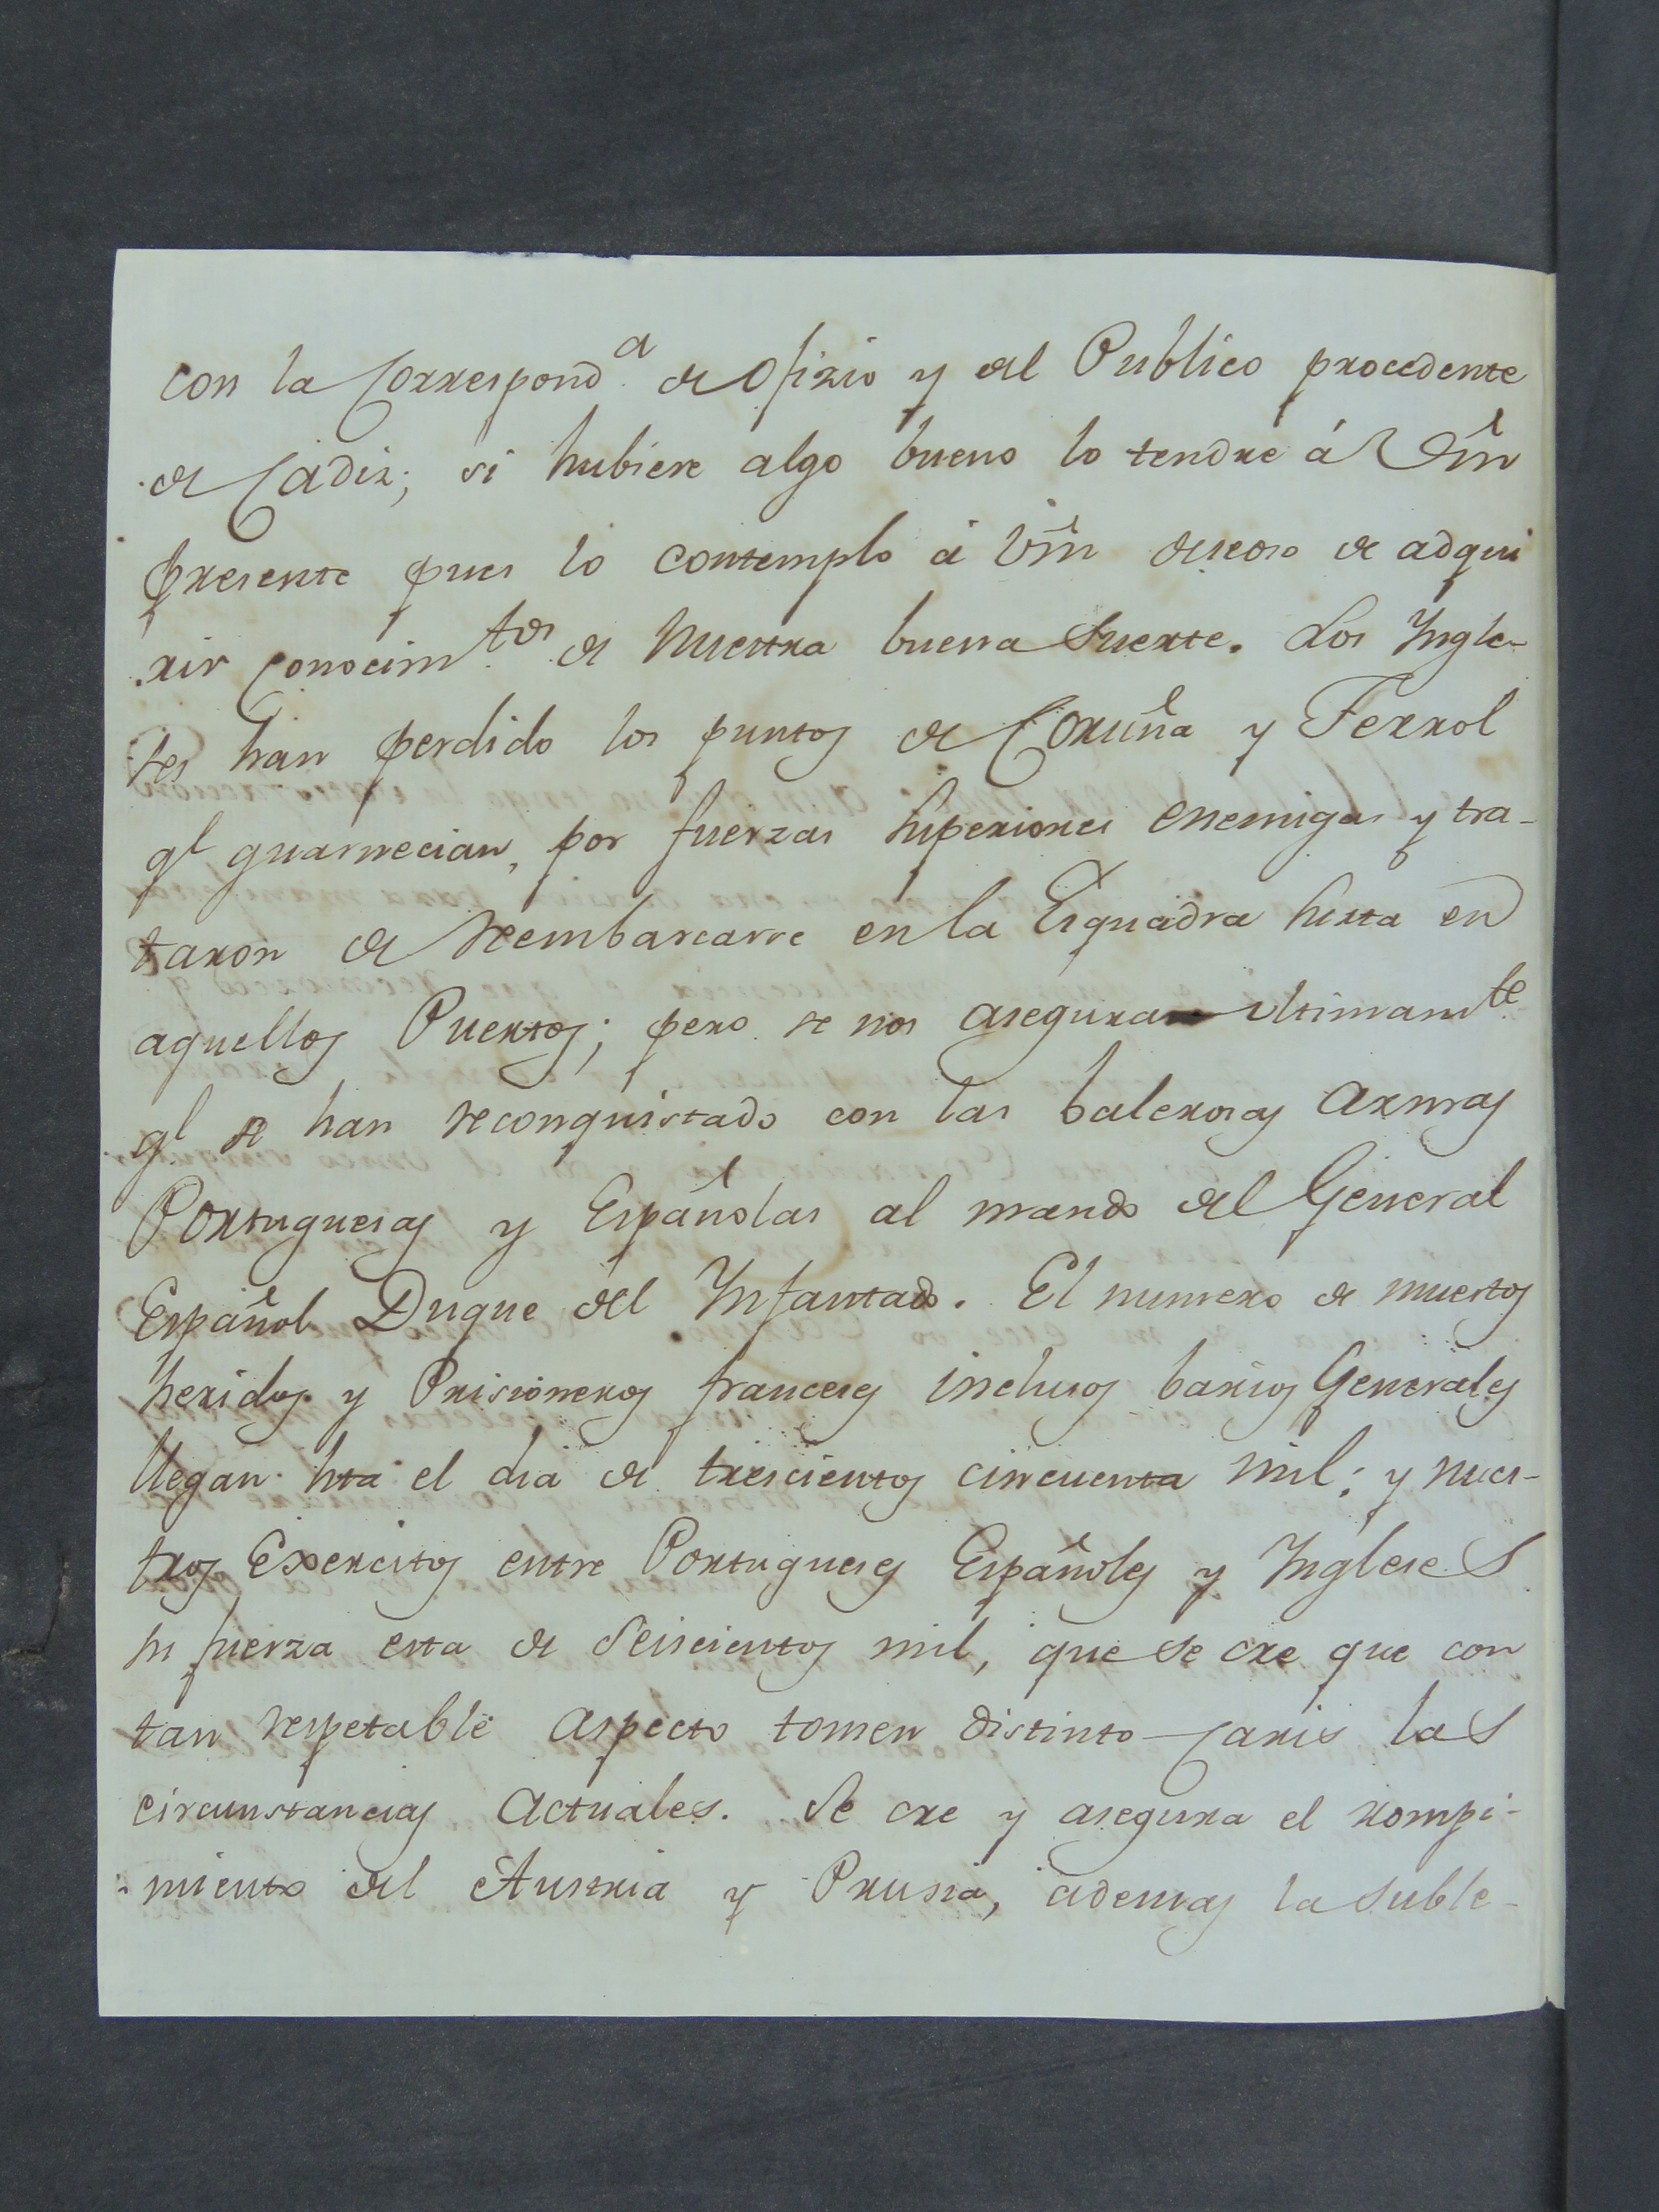 con la Correspond.a de Ofizio y del Publico procedente
de Cadiz; si hubiere algo bueno lo tendre á Vm
presente pues lo contemplo á Vm deseoso de adqui
rir Conocim.tos de Nuestra buena Suerte. Los Ingle-
ses han perdido los puntos de Coruña y Ferrol
q.e guarnecian, por fuerzas superiores enemigas y tra-
taron de reembarcarse en la Esquadra surta en
aquellos Puertos; pero se nos asegura ultimam.te
q.e se han reconquistado con las balerosas armas
Portuguesas y Españolas al mando del General
Español Duque del Infantado. El numero de muertos
heridos y Prisioneros franceses inclusos barios Generales
llegan hta el dia de trescientos cincuenta mil; y nues-
tros Exercitos entre Portugueses Españoles y Ingleses
su fuerza esta de Seiscientos mil, que se cre que con
tan respetable aspecto tomen distinto Caris las
circunstancias Actuales. Se cre y asegura el rompi-
miento del Austria y Prusia, ademas la suble-